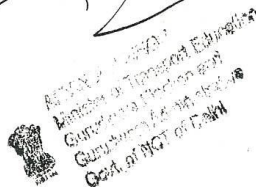 Minister of Transport, Education
Gurudwara Election and
Gurudwara Administration
Govt. of NCT of Delhi